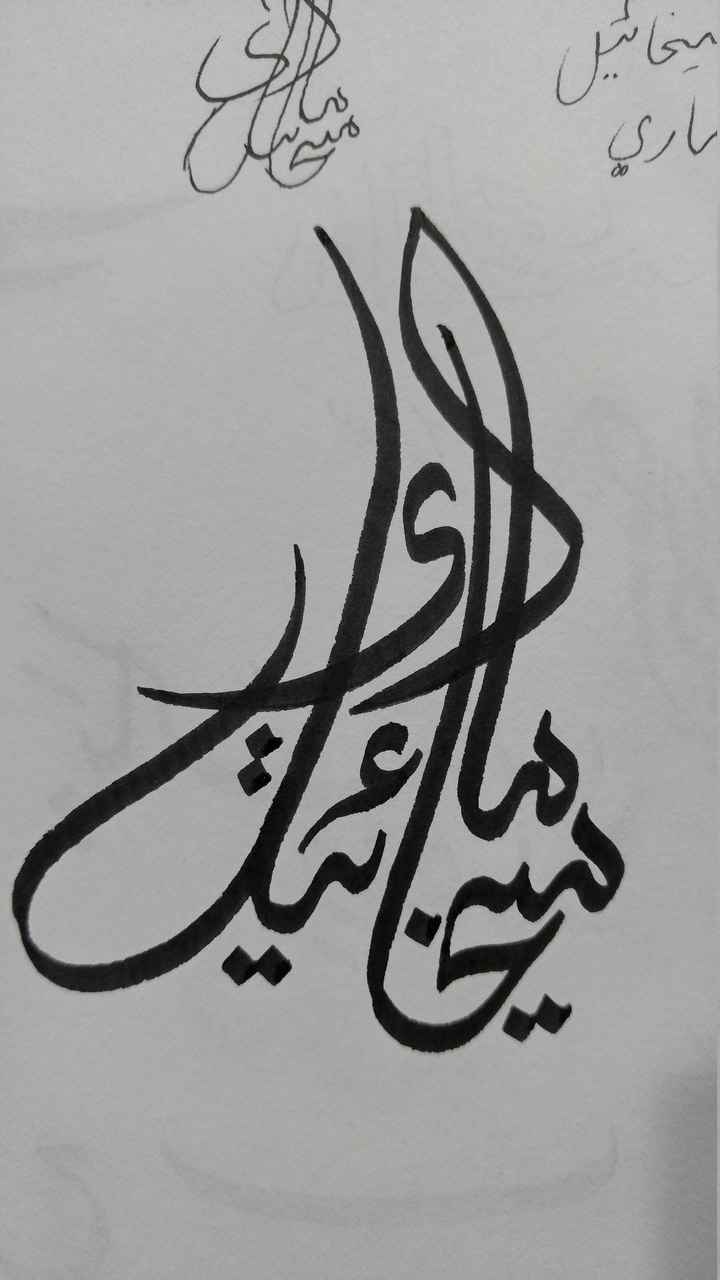 ميخائيل
ماري
ماري
ميخائيل
ماري
ميخائيل